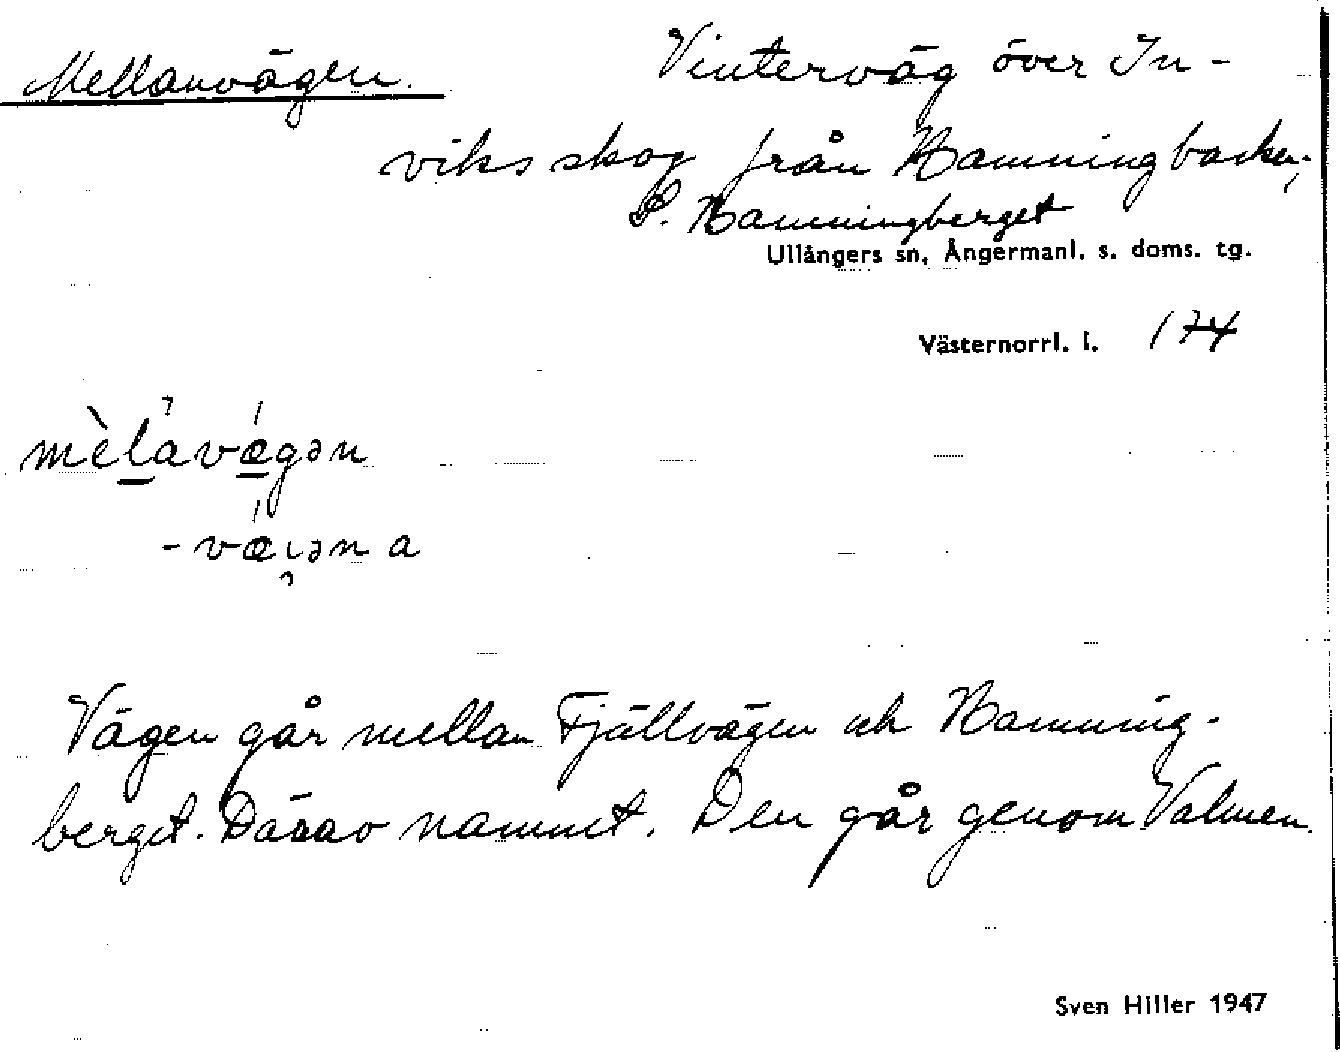 Mellanvägen. Vinterväg över In-
viks skog från Hamningbacken,
S. Hamningberget
Ullångers sn, Ångermanl. s. doms. tg.
Västernorrl. l. 174
mèlavægən
-væıən a
Vägen går mellan Fjällvägen och Hamning-
berget. Därav namnet. Den går genom Valmen.
Sven Hiller 1947